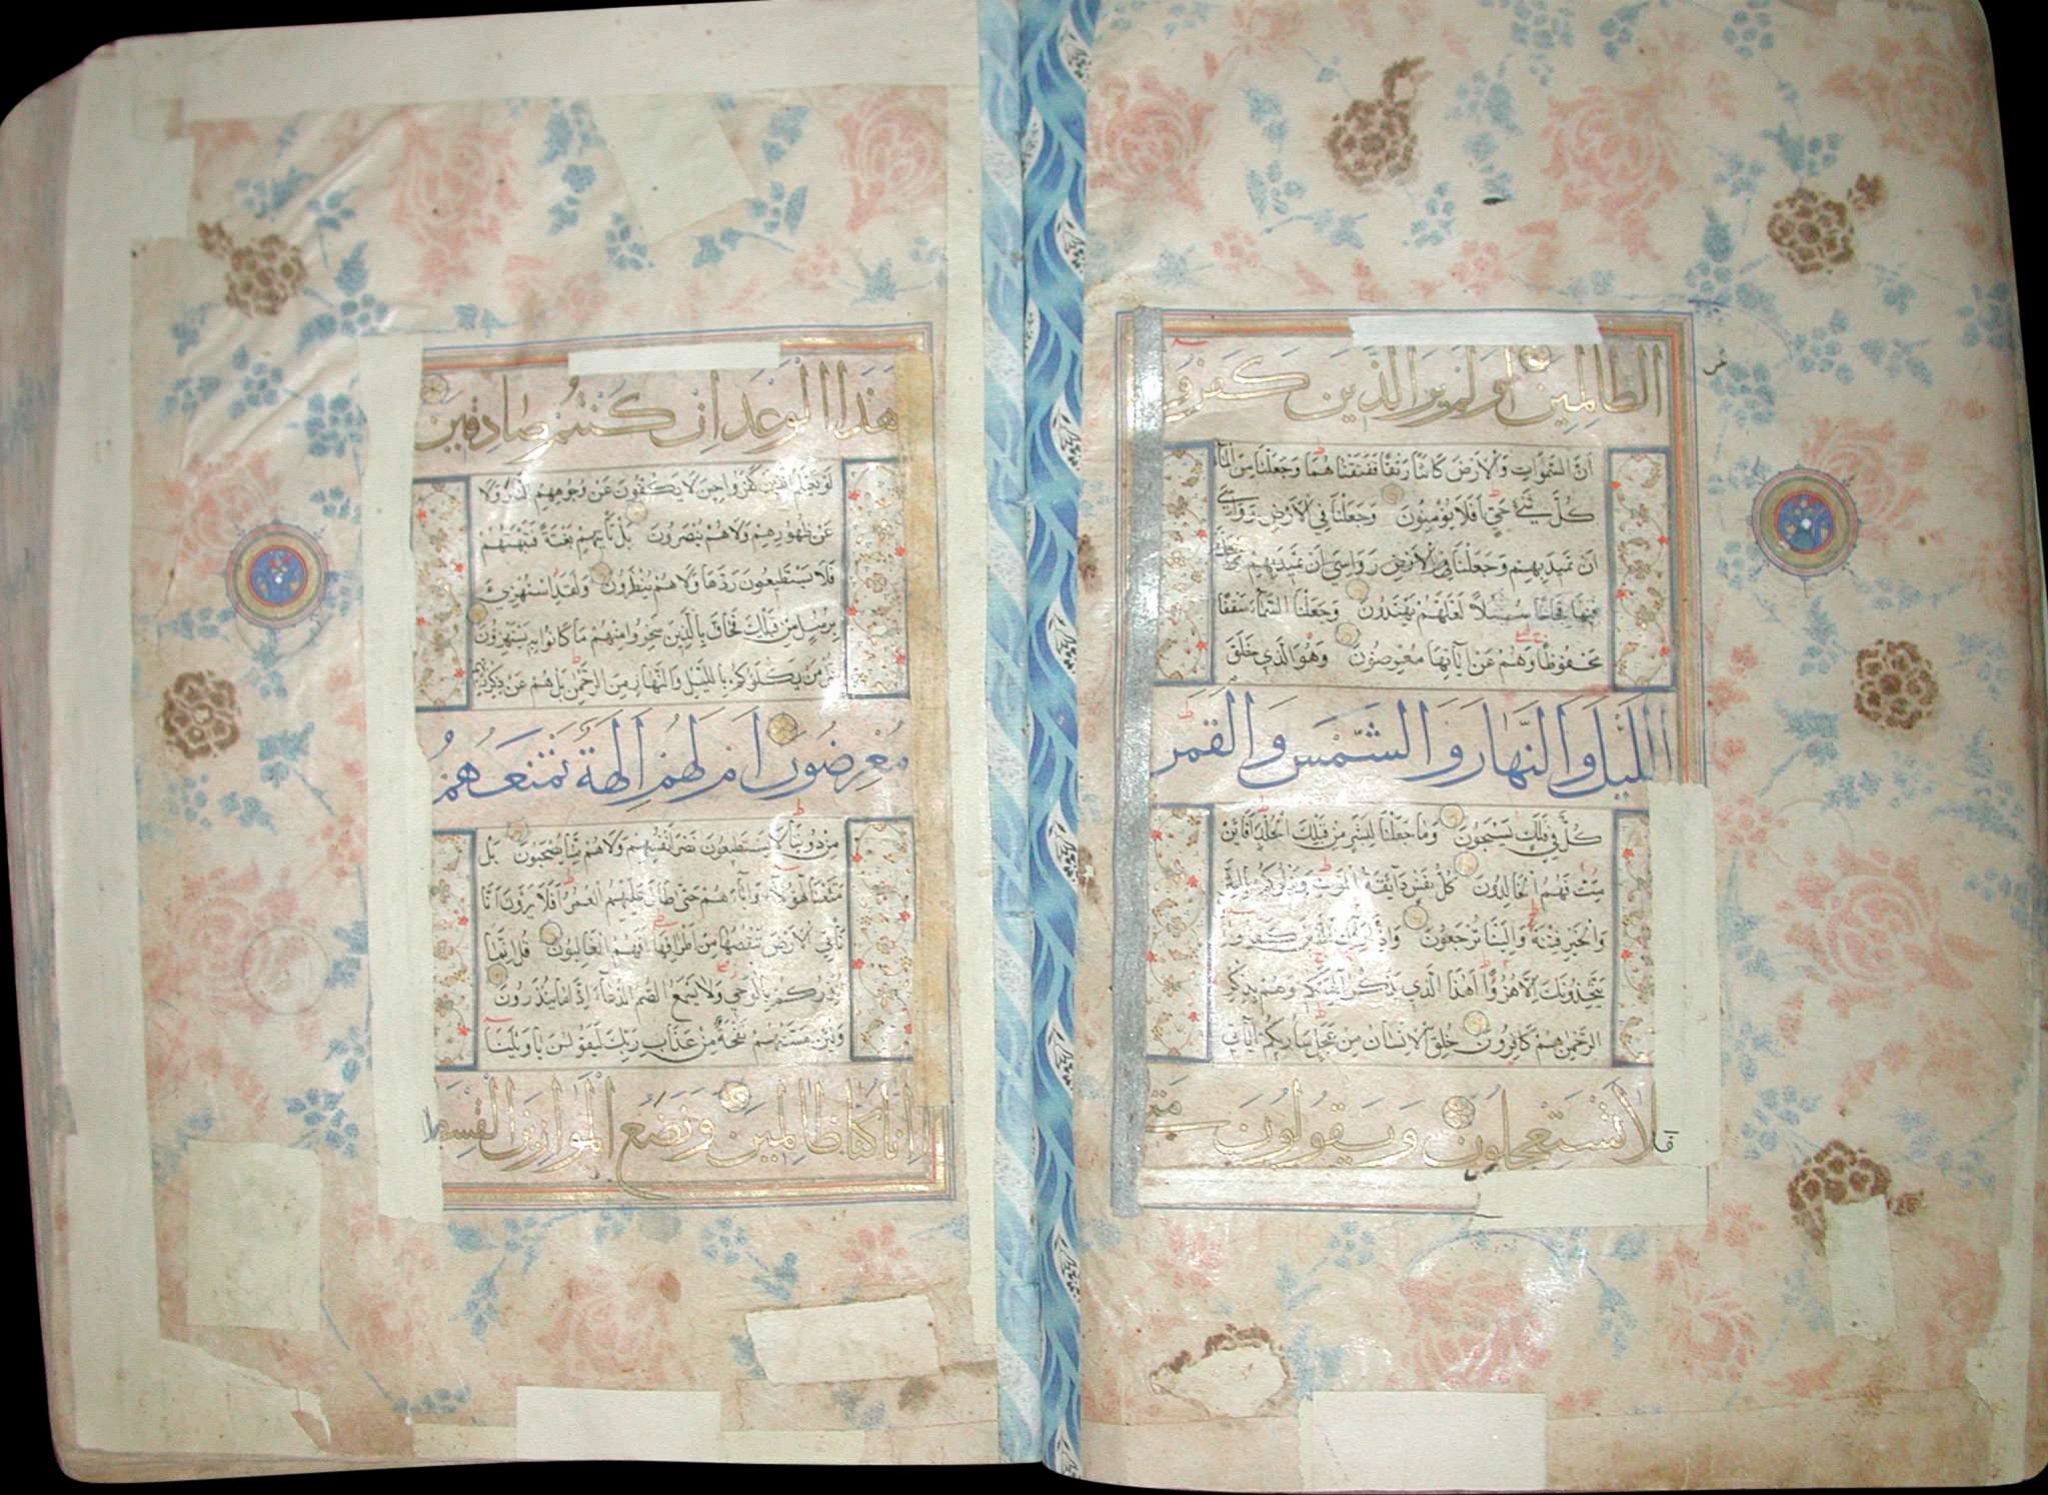 الظالمين اولم ير الذين كفروا
أن السموات والأرض كانتا رتقا ففتقناهما وجعلنا من الماء
كل شئ حي أفلا يؤمنون وجعلنا في الأرض رواسي
ان تميد بهم وجعلنا في الأرض رواسي ان تميد بهم وجعلنا
فيها فجاجا سبلا لعلهم يهتدون وجعلنا السماء سقفا
محفوظا وهم عن آياتها معرضون وهو الذي خلق
الليل والنهار والشمس والقمر
كل في فلك يسبحون وما جعلنا لبشر من قبلك الخلد أفائن
مت فهم الخالدون كل نفس ذايقة الموت ونبلوكم
والخير فتنة والينا ترجعون وإذا رآك الذين كفروا
يتخذونك إلا هزوا أهذا الذي يذكر آلهتكم وهم بذكر
الرحمن هم كافرون خلق الإنسان من عجل سأريكم آياتي
فلا تستعجلون ويقولون متى
هذا الوعد ان كنتم صادقين
لو يعلم الذين كفروا حين لا يكفون عن وجوههم النار ولا
عن ظهورهم ولا هم ينصرون بل تأتيهم بغتة فتبهتهم
فلا يستطيعون ردها ولا هم ينظرون ولقد استهزئ
برسل من قبلك فحاق بالذين سخروا منهم ما كانوا به يستهزؤن
قل من يكلؤكم بالليل والنهار من الرحمن بل هم عن ذكر ربهم
معرضون ام لهم الهة تمنعهم
من دوننا لا يستطيعون نصر انفسهم ولا هم منا يصحبون بل
متعنا هؤلاء وآباءهم حتى طال عليهم العمر أفلا يرون انا
نأتي الأرض ننقصها من اطرافها افهم الغالبون قل إنما
أنذركم بالوحي ولا يسمع الصم الدعاء إذا ما ينذرون
ولئن مستهم نفحة من عذاب ربك ليقولن يا ويلنا
انا كنا ظالمين ونضع الموازين القسط